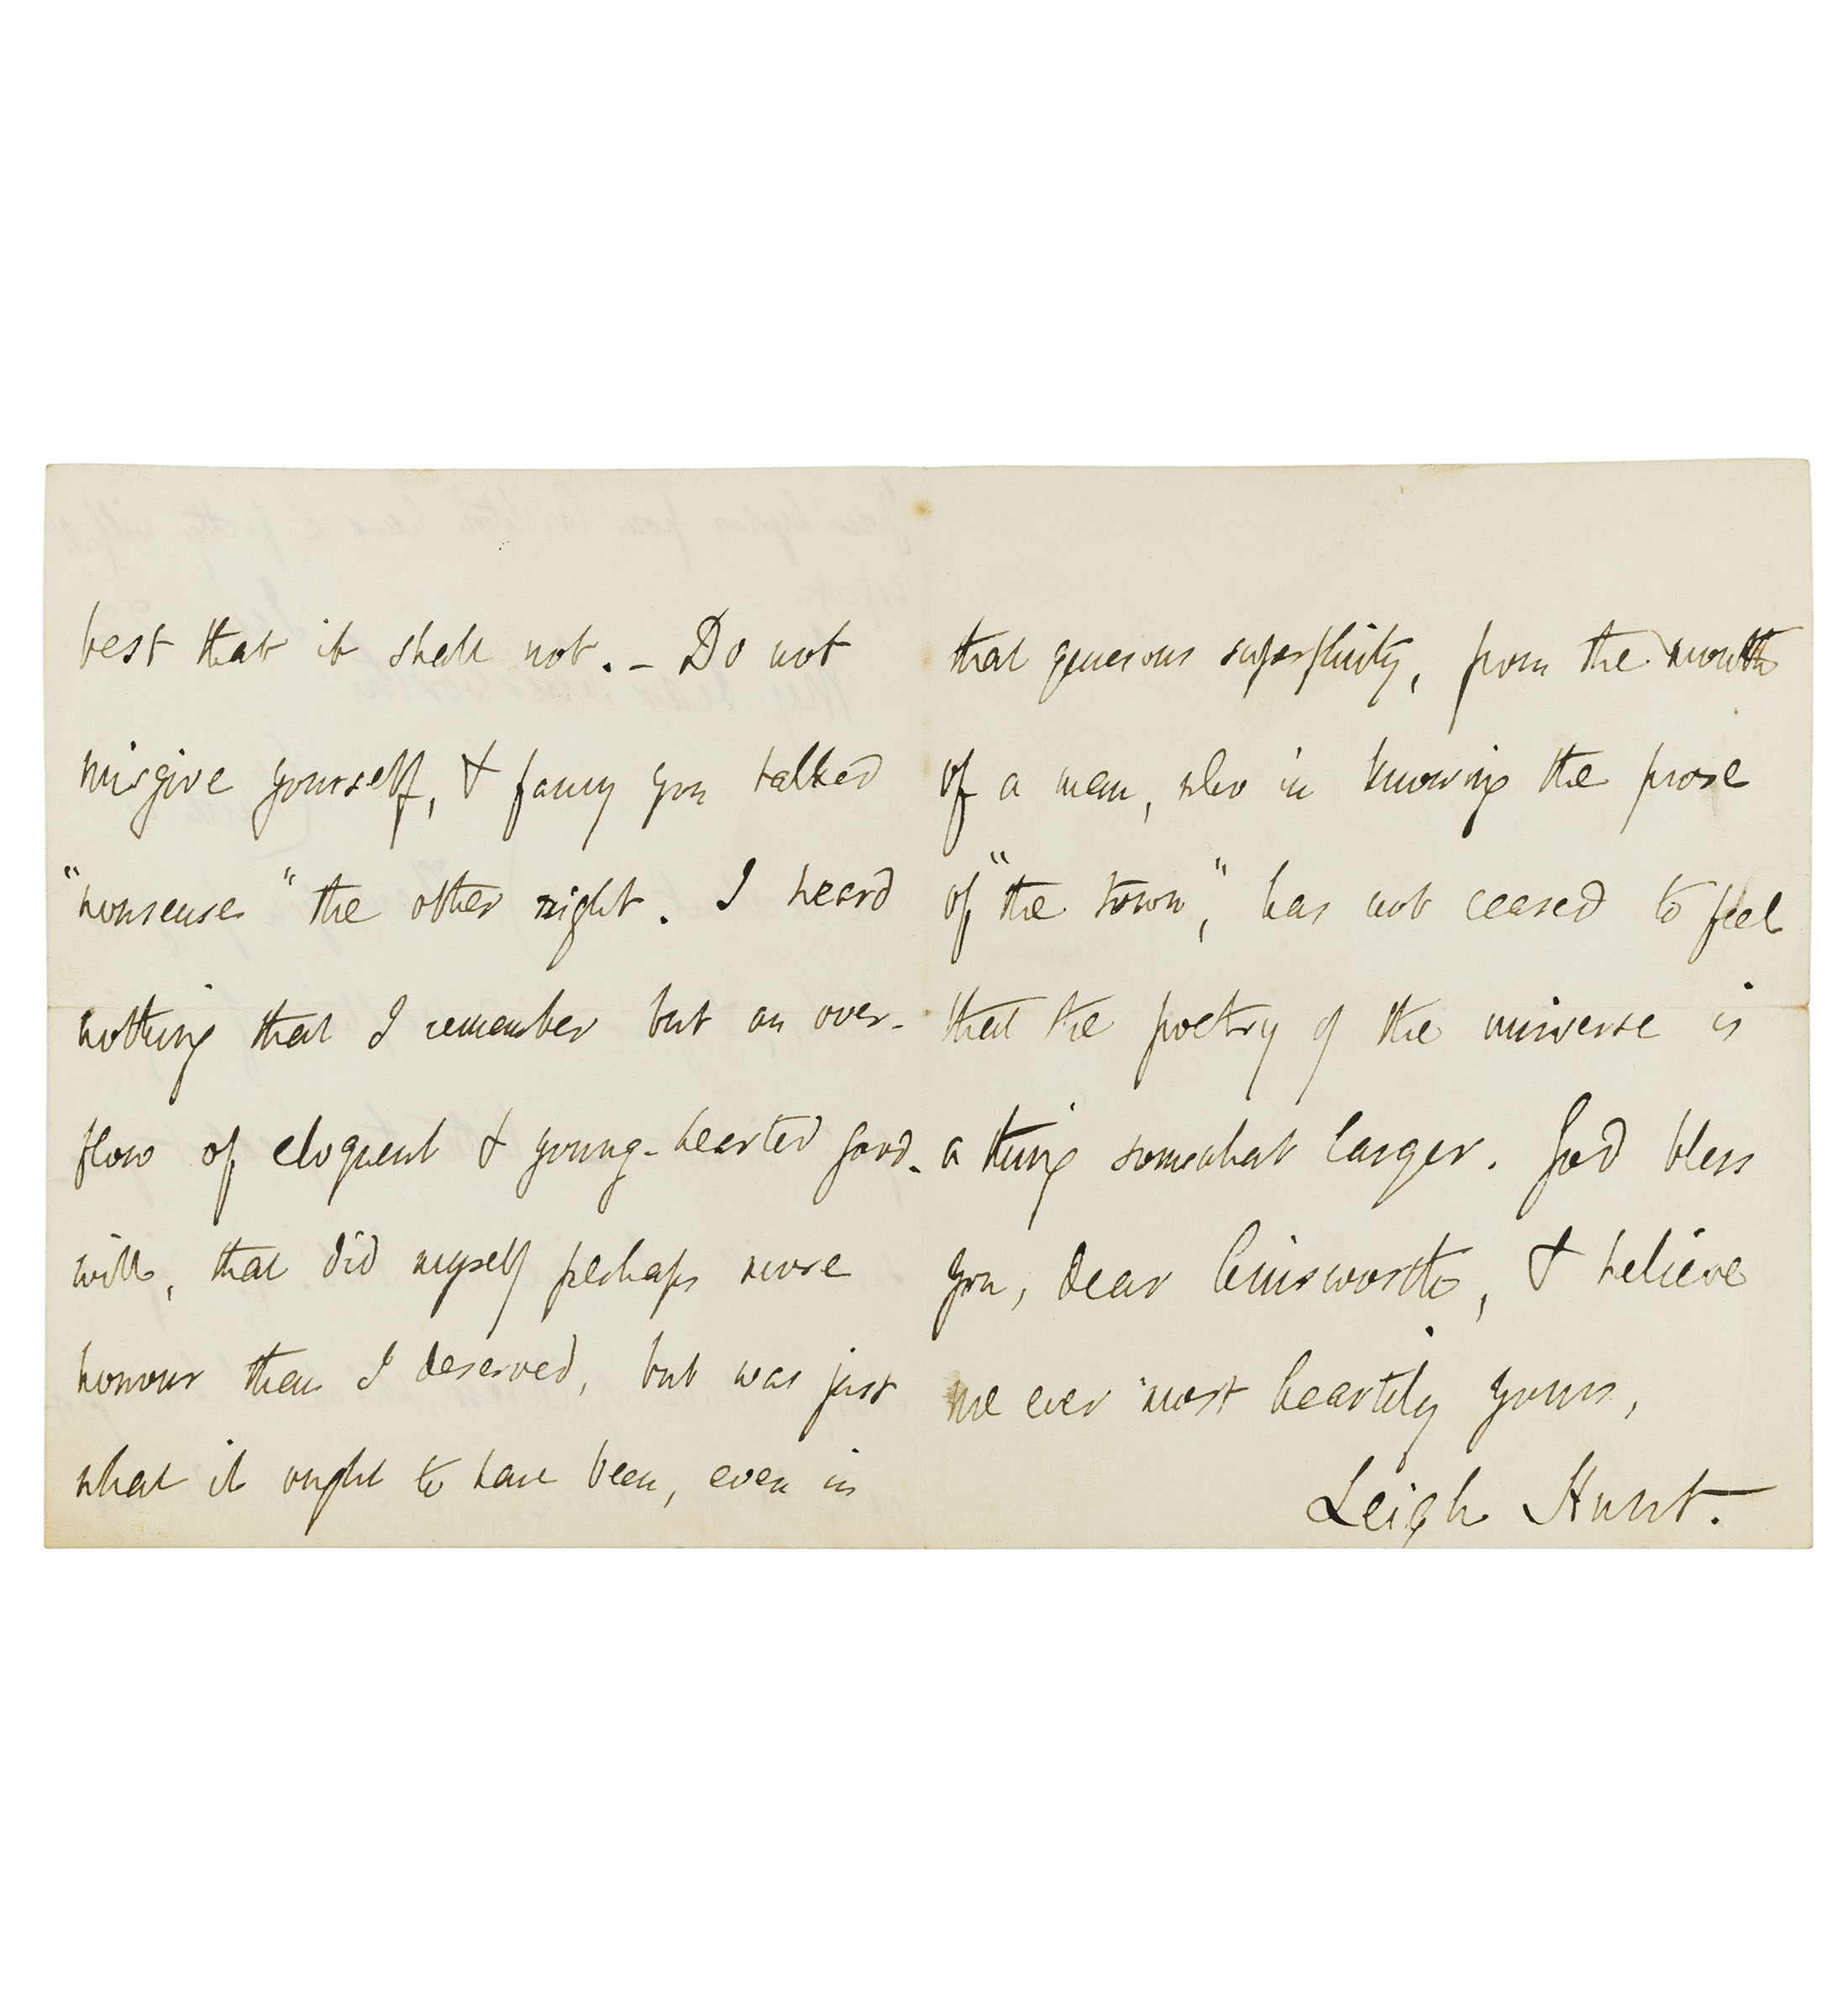 best that it shall not. – Do not
misgive yourself, & fancy you talked
"nonsense" the other night. I heard
nothing that I remember but an over-
flow of eloquent & young-hearted good-
will, that did myself perhaps more
honour than I deserved, but was just
what it ought to have been, even in
that generous superfluity, from the mouth
of a man, who in knowing the prose
of "the town", has not ceased to feel
that the poetry of the universe is
a thing somewhat larger. God bless
you, dear Ainsworth, & believe
me ever most heartily yours,
Leigh Hunt.